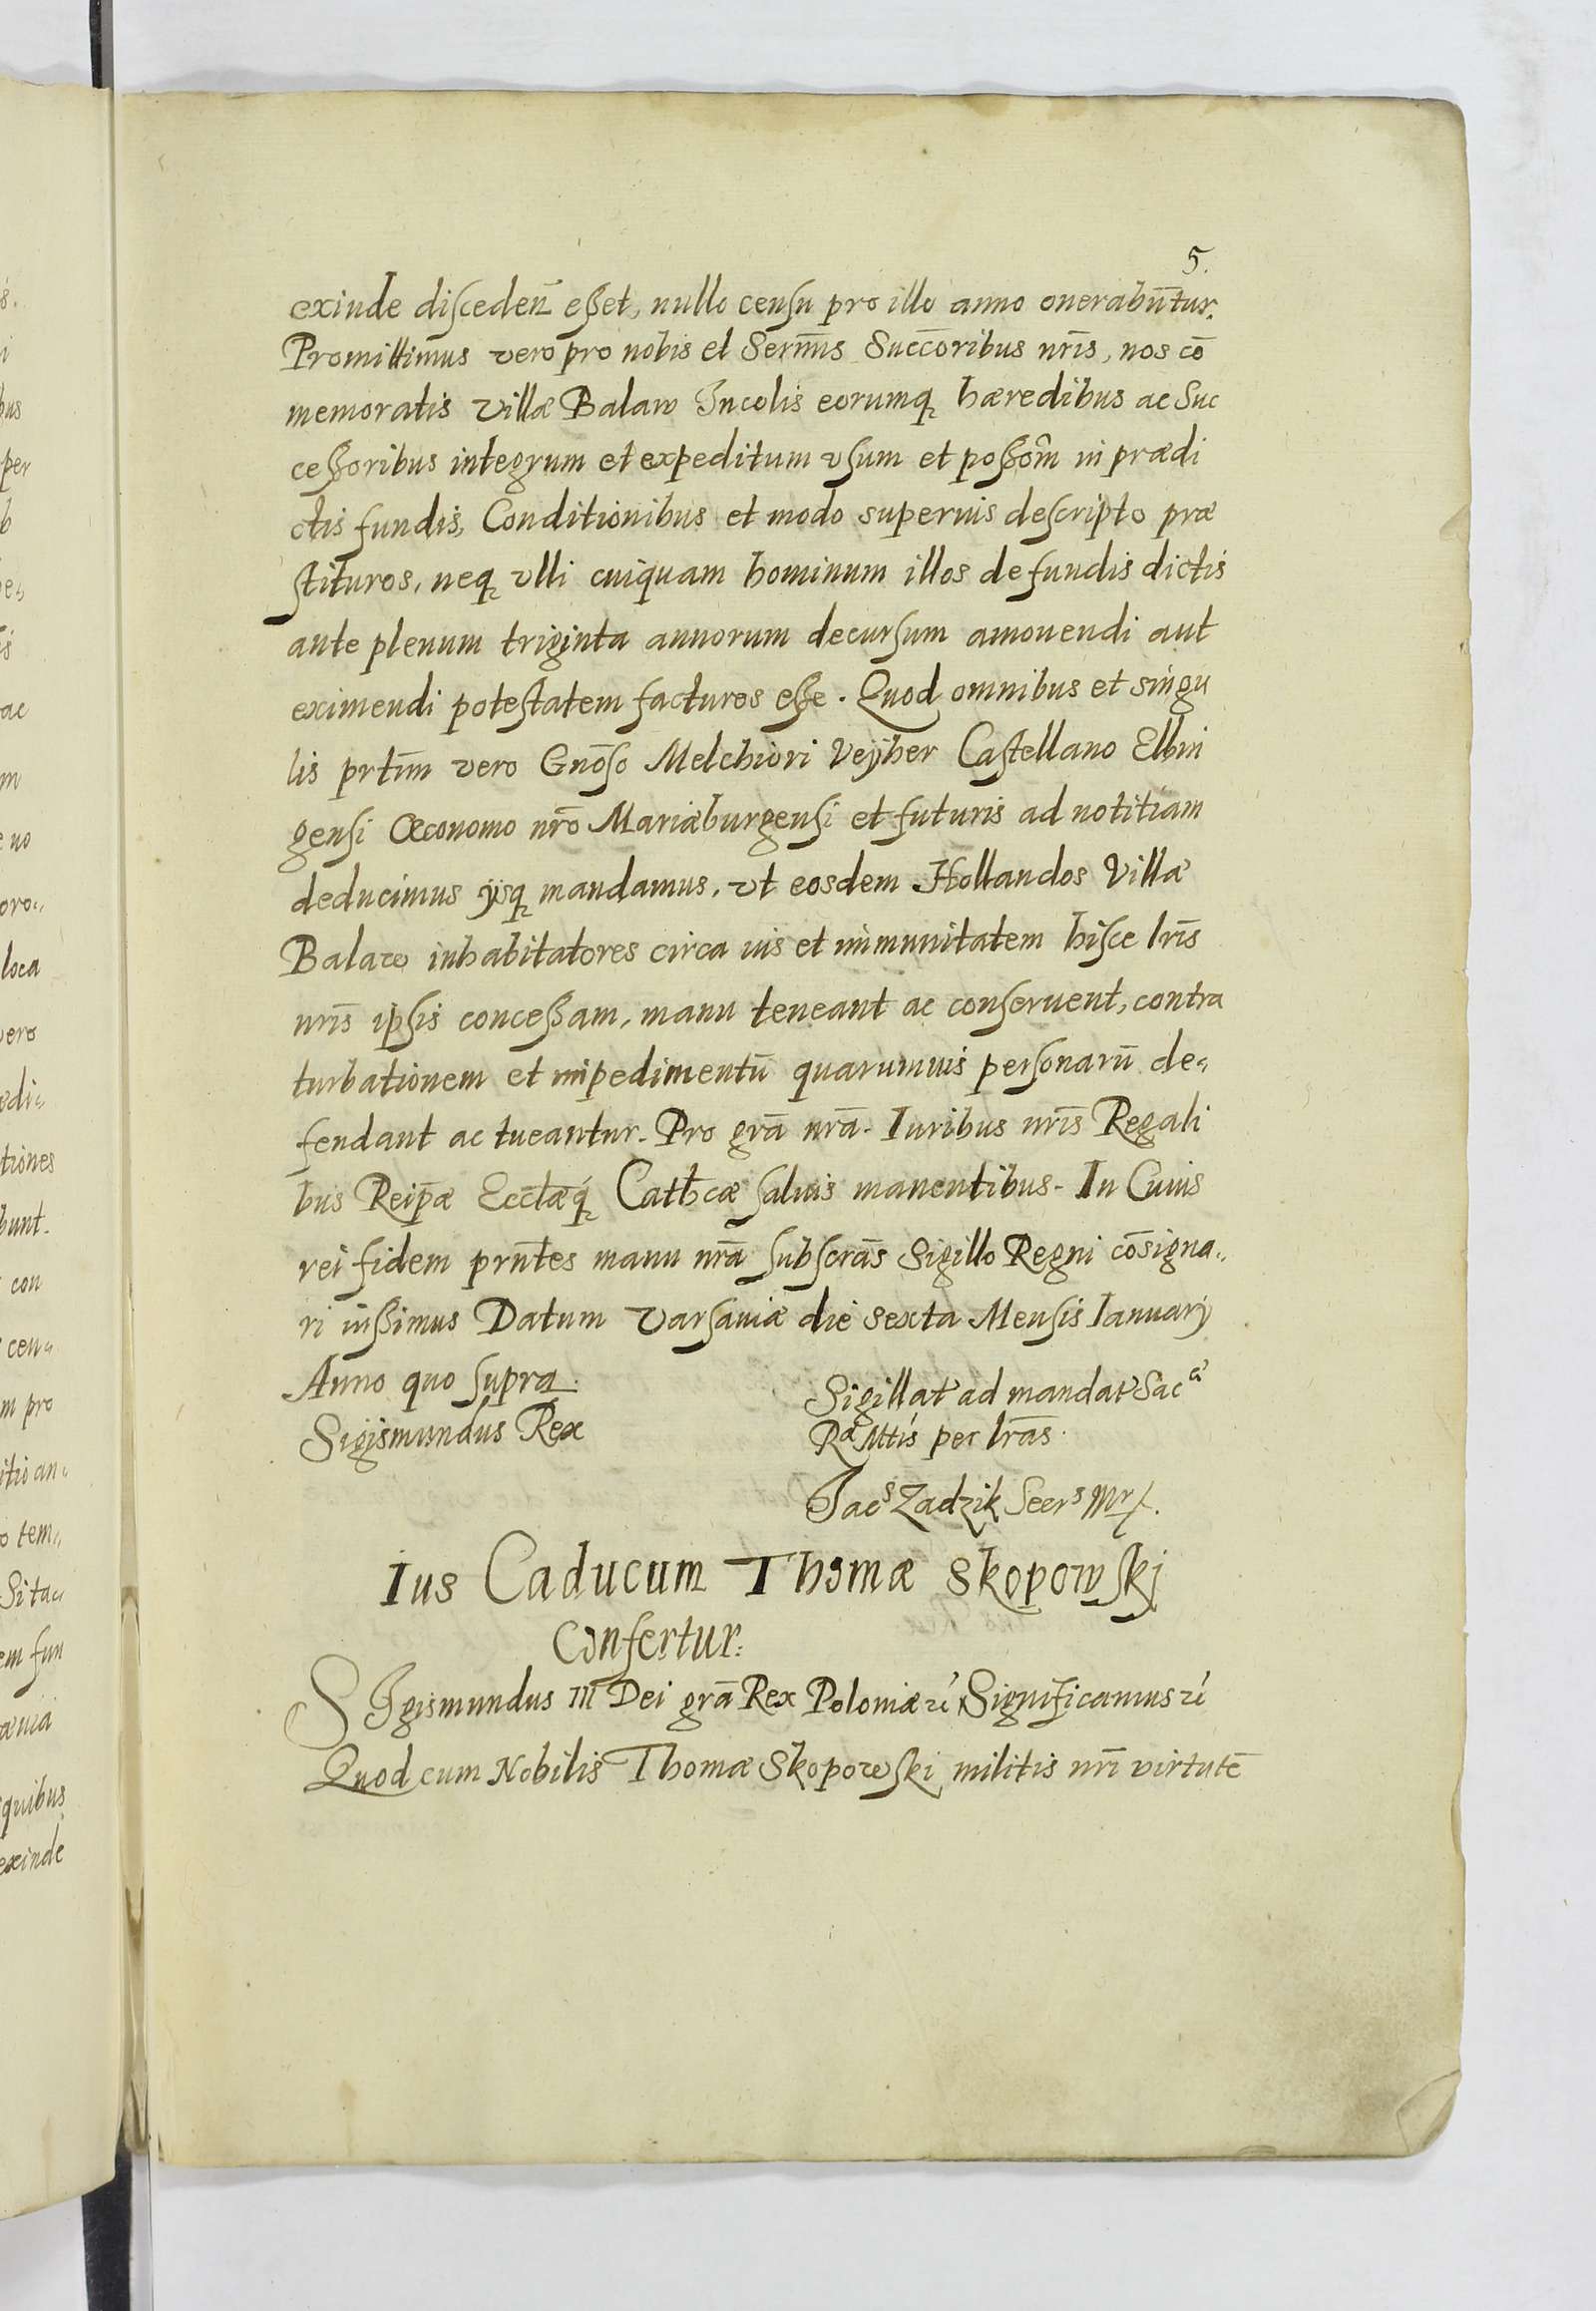 5.
exinde discedeñ esset, nullo censu pro illo anno onerabūtur.
Promittimus vero pro nobis et Serm̄is Succ̄oribus nr̄is, nos cō
memoratis Villæ Balaw Incolis eorumq hæredibus ac Suc
cessoribus integrum et expeditum vsum et posseôm in prædi
ctis fundis, Conditionibus et modo superius descripto præ
stituros, neq vlli cuiquam hominum illos de fundis dictis
ante plenum triginta annorum decursum amouendi aut
eximendi potestatem facturos esse. Quod omnibus et singu
lis prt̄im vero Gnōso Melchiori Veÿher Castellano Elbin
gensi Œconomo nr̄o Mariæburgensi et futuris ad notitiam
deducimus ÿsq mandamus, vt eosdem Hollandos Villæ
Balaw inhabitatores circa ius et immunitatem hisce lr̄is
nr̄is ipsis concessam, manu teneant ac conseruent, contra
turbationem et impedimentū quarumuis personarū de-
fendant ac tueantur. Pro grā nrā. Iuribus nr̄is Regali
bus Reip̄æ Eccl̄æq́ Cath̄cæ saluis manentibus. In Cuius
rei fidem prn̄tes manu nrā subscrās Sigillo Regni cōsigna-
ri iussimus Datum Varsauiæ die sexta Mensis Ianuarÿ
Anno quo supra.
Sigismundus Rex
Sigillat ad mandat Sac a
Ra Mtis per lr̄as.
Jacs Zadzik Secrs Mr
Ius Caducum Thomæ Skopowski
Confertur.
SIgismundus III Dei grā Rex Poloniæ &c Significamus &c
Quod cum Nobilis Thomæ Skopowski militis nr̄i virtutē